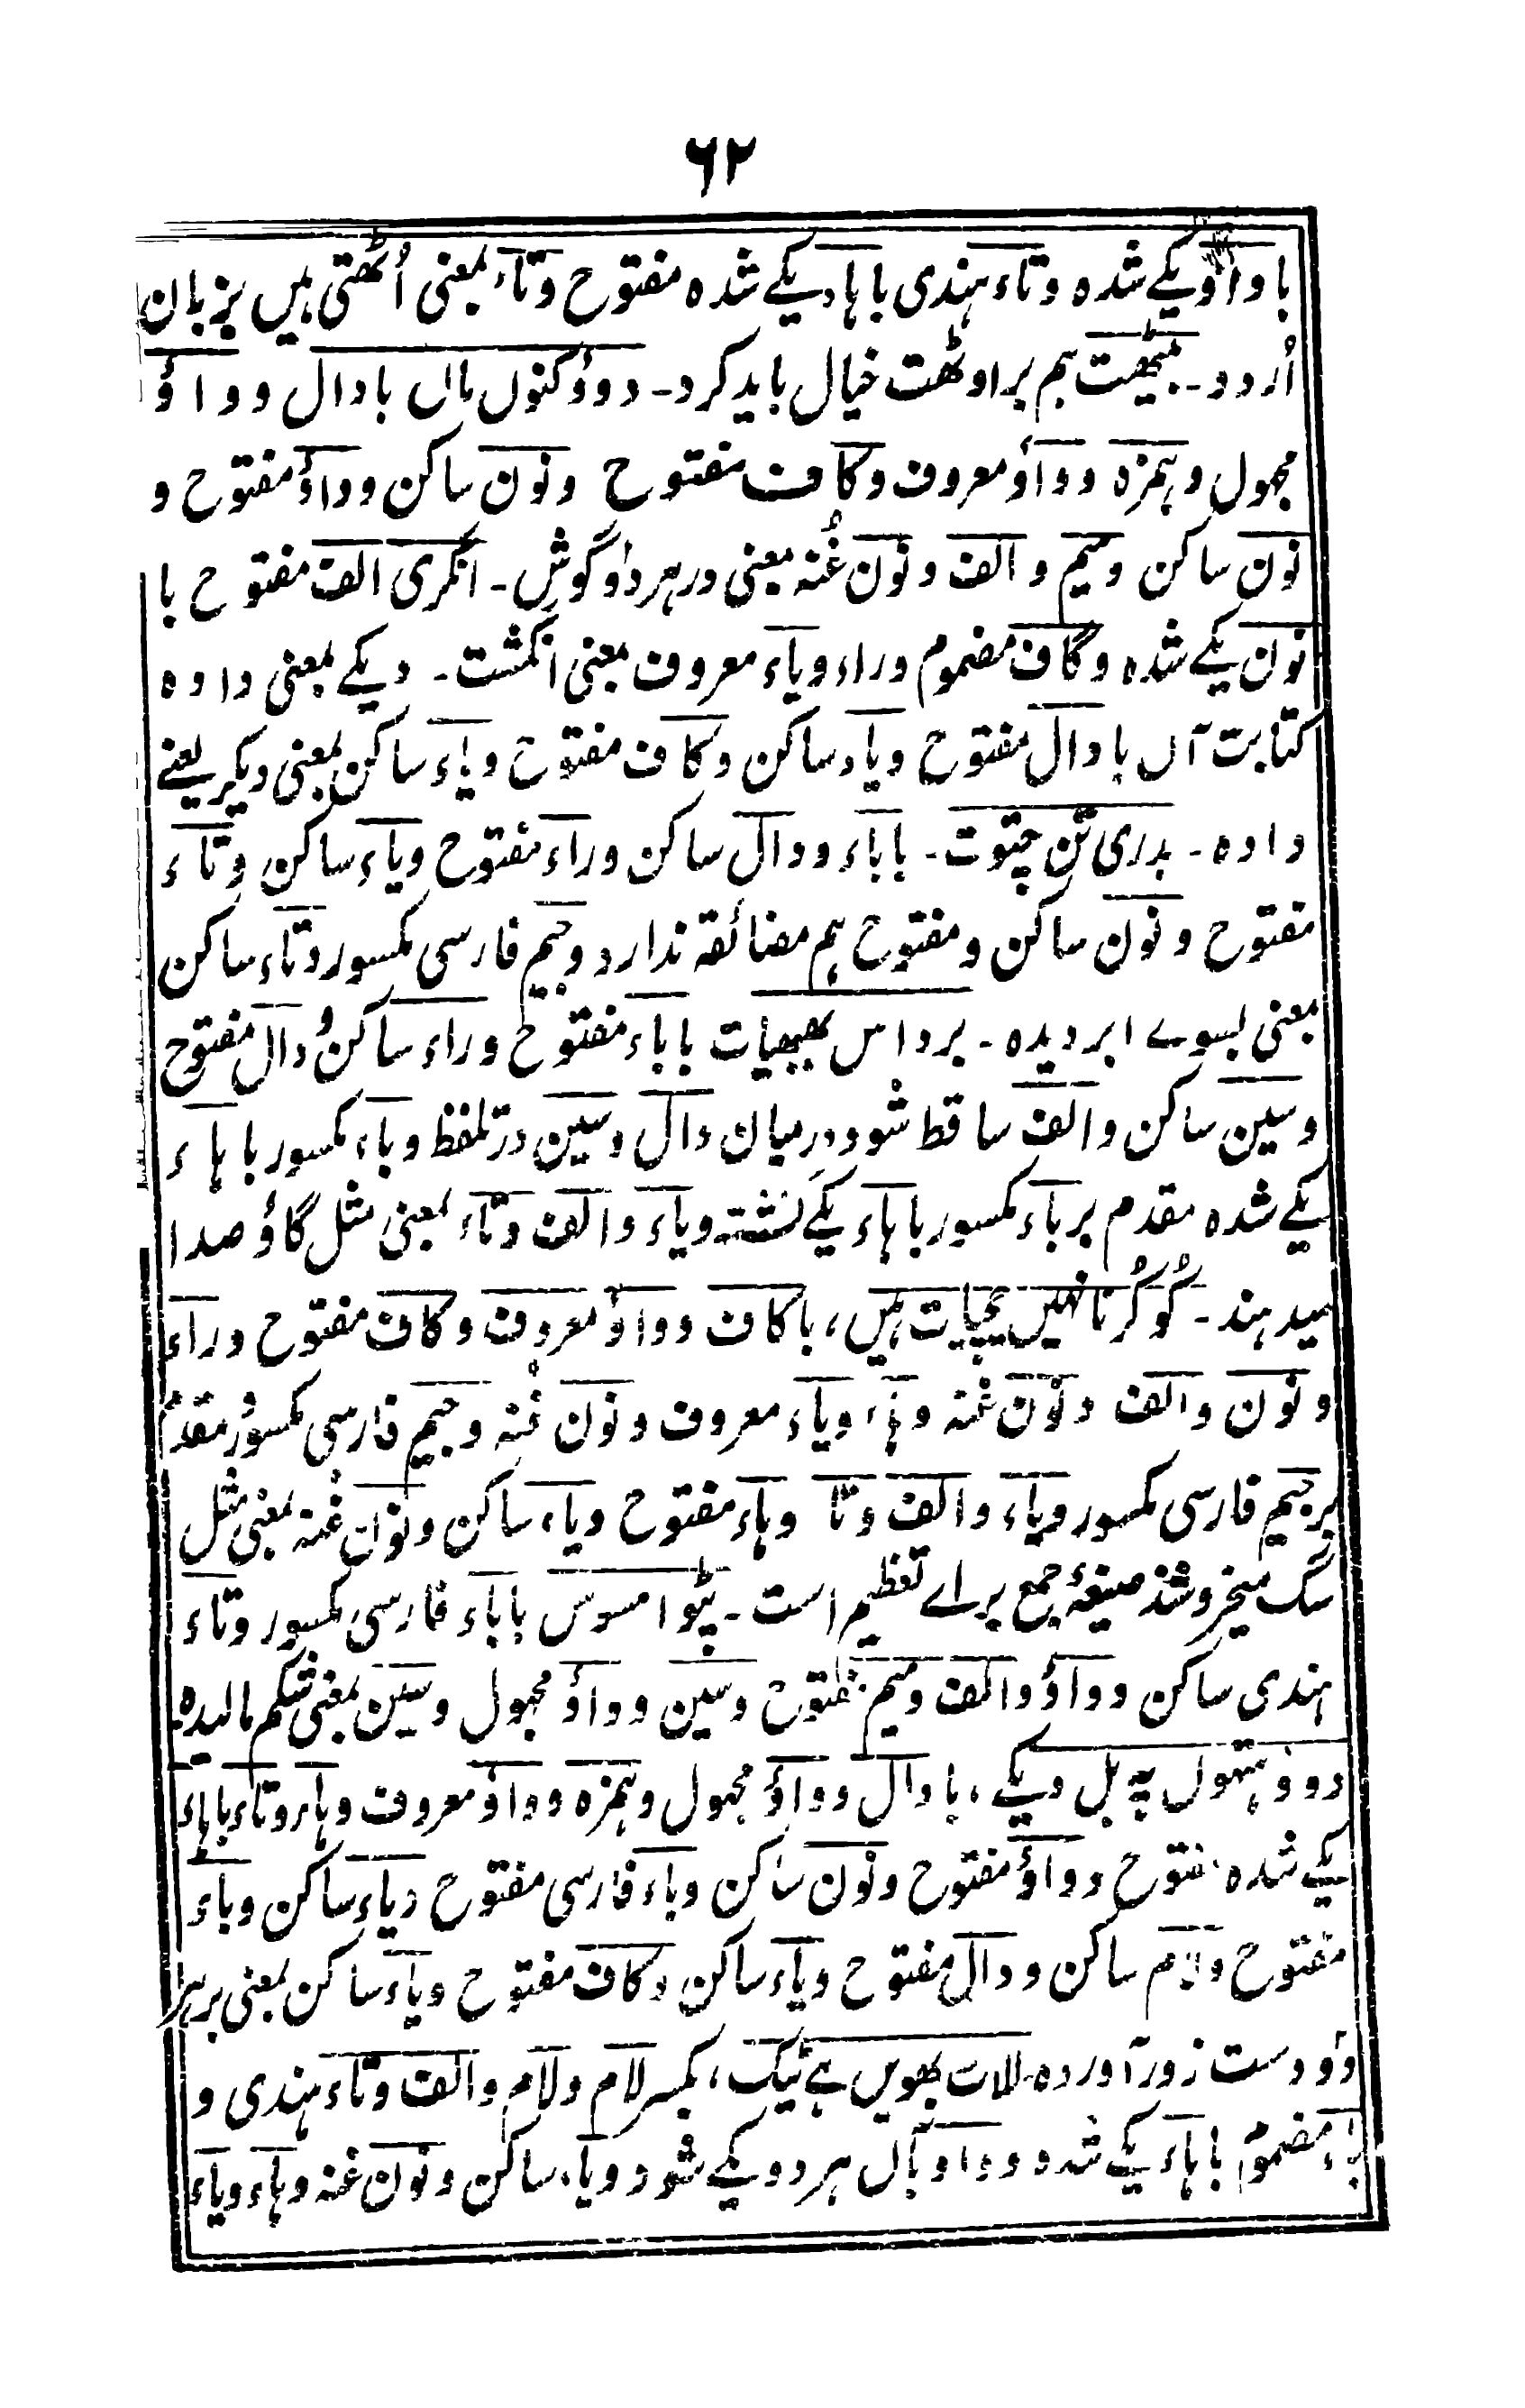 ۶۲
با واؤ یکے شدہ و تاء ہندی با ہاء یکے شدہ مفتوح و تاء بمعنی اُٹھتی ہیں بزبان
اُردو ۔ بیٹھت ہم براوٹھت خیال باید کرد ۔ دوؤ کنوں ماں با دال و واؤ
مجہول و ہمزہ و واؤ معروف و کاف مفتوح و نون ساکن و واؤ مفتوح و
نون ساکن و میم و الف و نون غُنہ بمعنی در ہر دو گوش ۔ انگری الف مفتوح با
نون یکے شدہ و گاف مضموم و راء و یاء معروف بمعنی انگشت ۔ دیکے بمعنی دادہ
کتابت آں با دال مفتوح و یاء ساکن و کاف مفتوح و یاء ساکن بمعنی دیکر یعنے
دادہ ۔ بدری تن چتوت ۔ با باء و دال ساکن و راء مفتوح و یاء ساکن و تاء
مفتوح و نون ساکن و مفتوح ہم مضائقہ ندارد و جیم فارسی مکسور و تاء ساکن
بمعنی بسوے ابر دیدہ ۔ برداس بھبھیات با باء مفتوح و راء ساکن و دال مفتوح
و سین ساکن و الف ساقط شود درمیان دال و سین در تلفظ و باء مکسور با ہاء
یکے شدہ مقدم بر باء مکسور با ہاء یکے گشتہ و یاء و الف و تاء بمعنی مثل گاؤ صدا
میدہند ۔ کُوکُرنا نہیں چچیات ہیں، با کاف و واؤ معروف و کاف مفتوح و راء
و نون و الف و نون غنہ و ہاء و یاء معروف و نون غنہ و جیم فارسی مکسور مقدم
بر جیم فارسی مکسور و یاء و الف و تا و ہاء مفتوح و یاء ساکن و نون غنہ بمعنی مثل
سگ میخروشند صیغۂ جمع براے تعظیم است ۔ پٹوا مسوس با باء فارسی مکسور و تاء
ہندی ساکن و واؤ و الف و میم مفتوح و سین و واؤ مجہول و سین بمعنی شکم مالیدہ
دوؤ ہتھول پہ بل دیکے، با دال و واؤ مجہول و ہمزہ و واؤ معروف و ہاء و تاء با ہاء
یکے شدہ مفتوح و واؤ مفتوح و نون ساکن و باء فارسی مفتوح و یاء ساکن و باء
مفتوح و لام ساکن و دال مفتوح و یاء ساکن و کاف مفتوح و یاء ساکن بمعنی بر ہر
دو دست زور آوردہ للات بھویں ہے ٹیک، بکسر لام و لام و الف و تاء ہندی و
باء مضموم با ہاء یکے شدہ و واؤ بآں ہر دو یکے شود و یاء ساکن و نون غنہ و ہاء و یاء